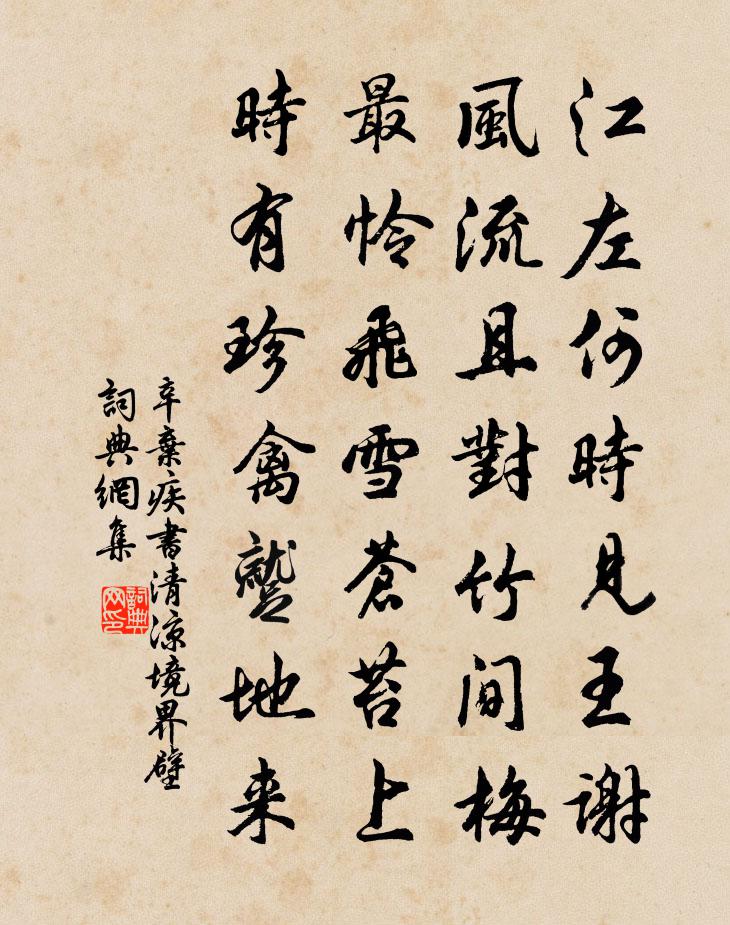 江左何時見王謝
風流且對竹間梅
最怜飛雪蒼苔上
時有珍禽蹵地来
辛棄疾書清凉境界壁
詞典網集
詞典网印